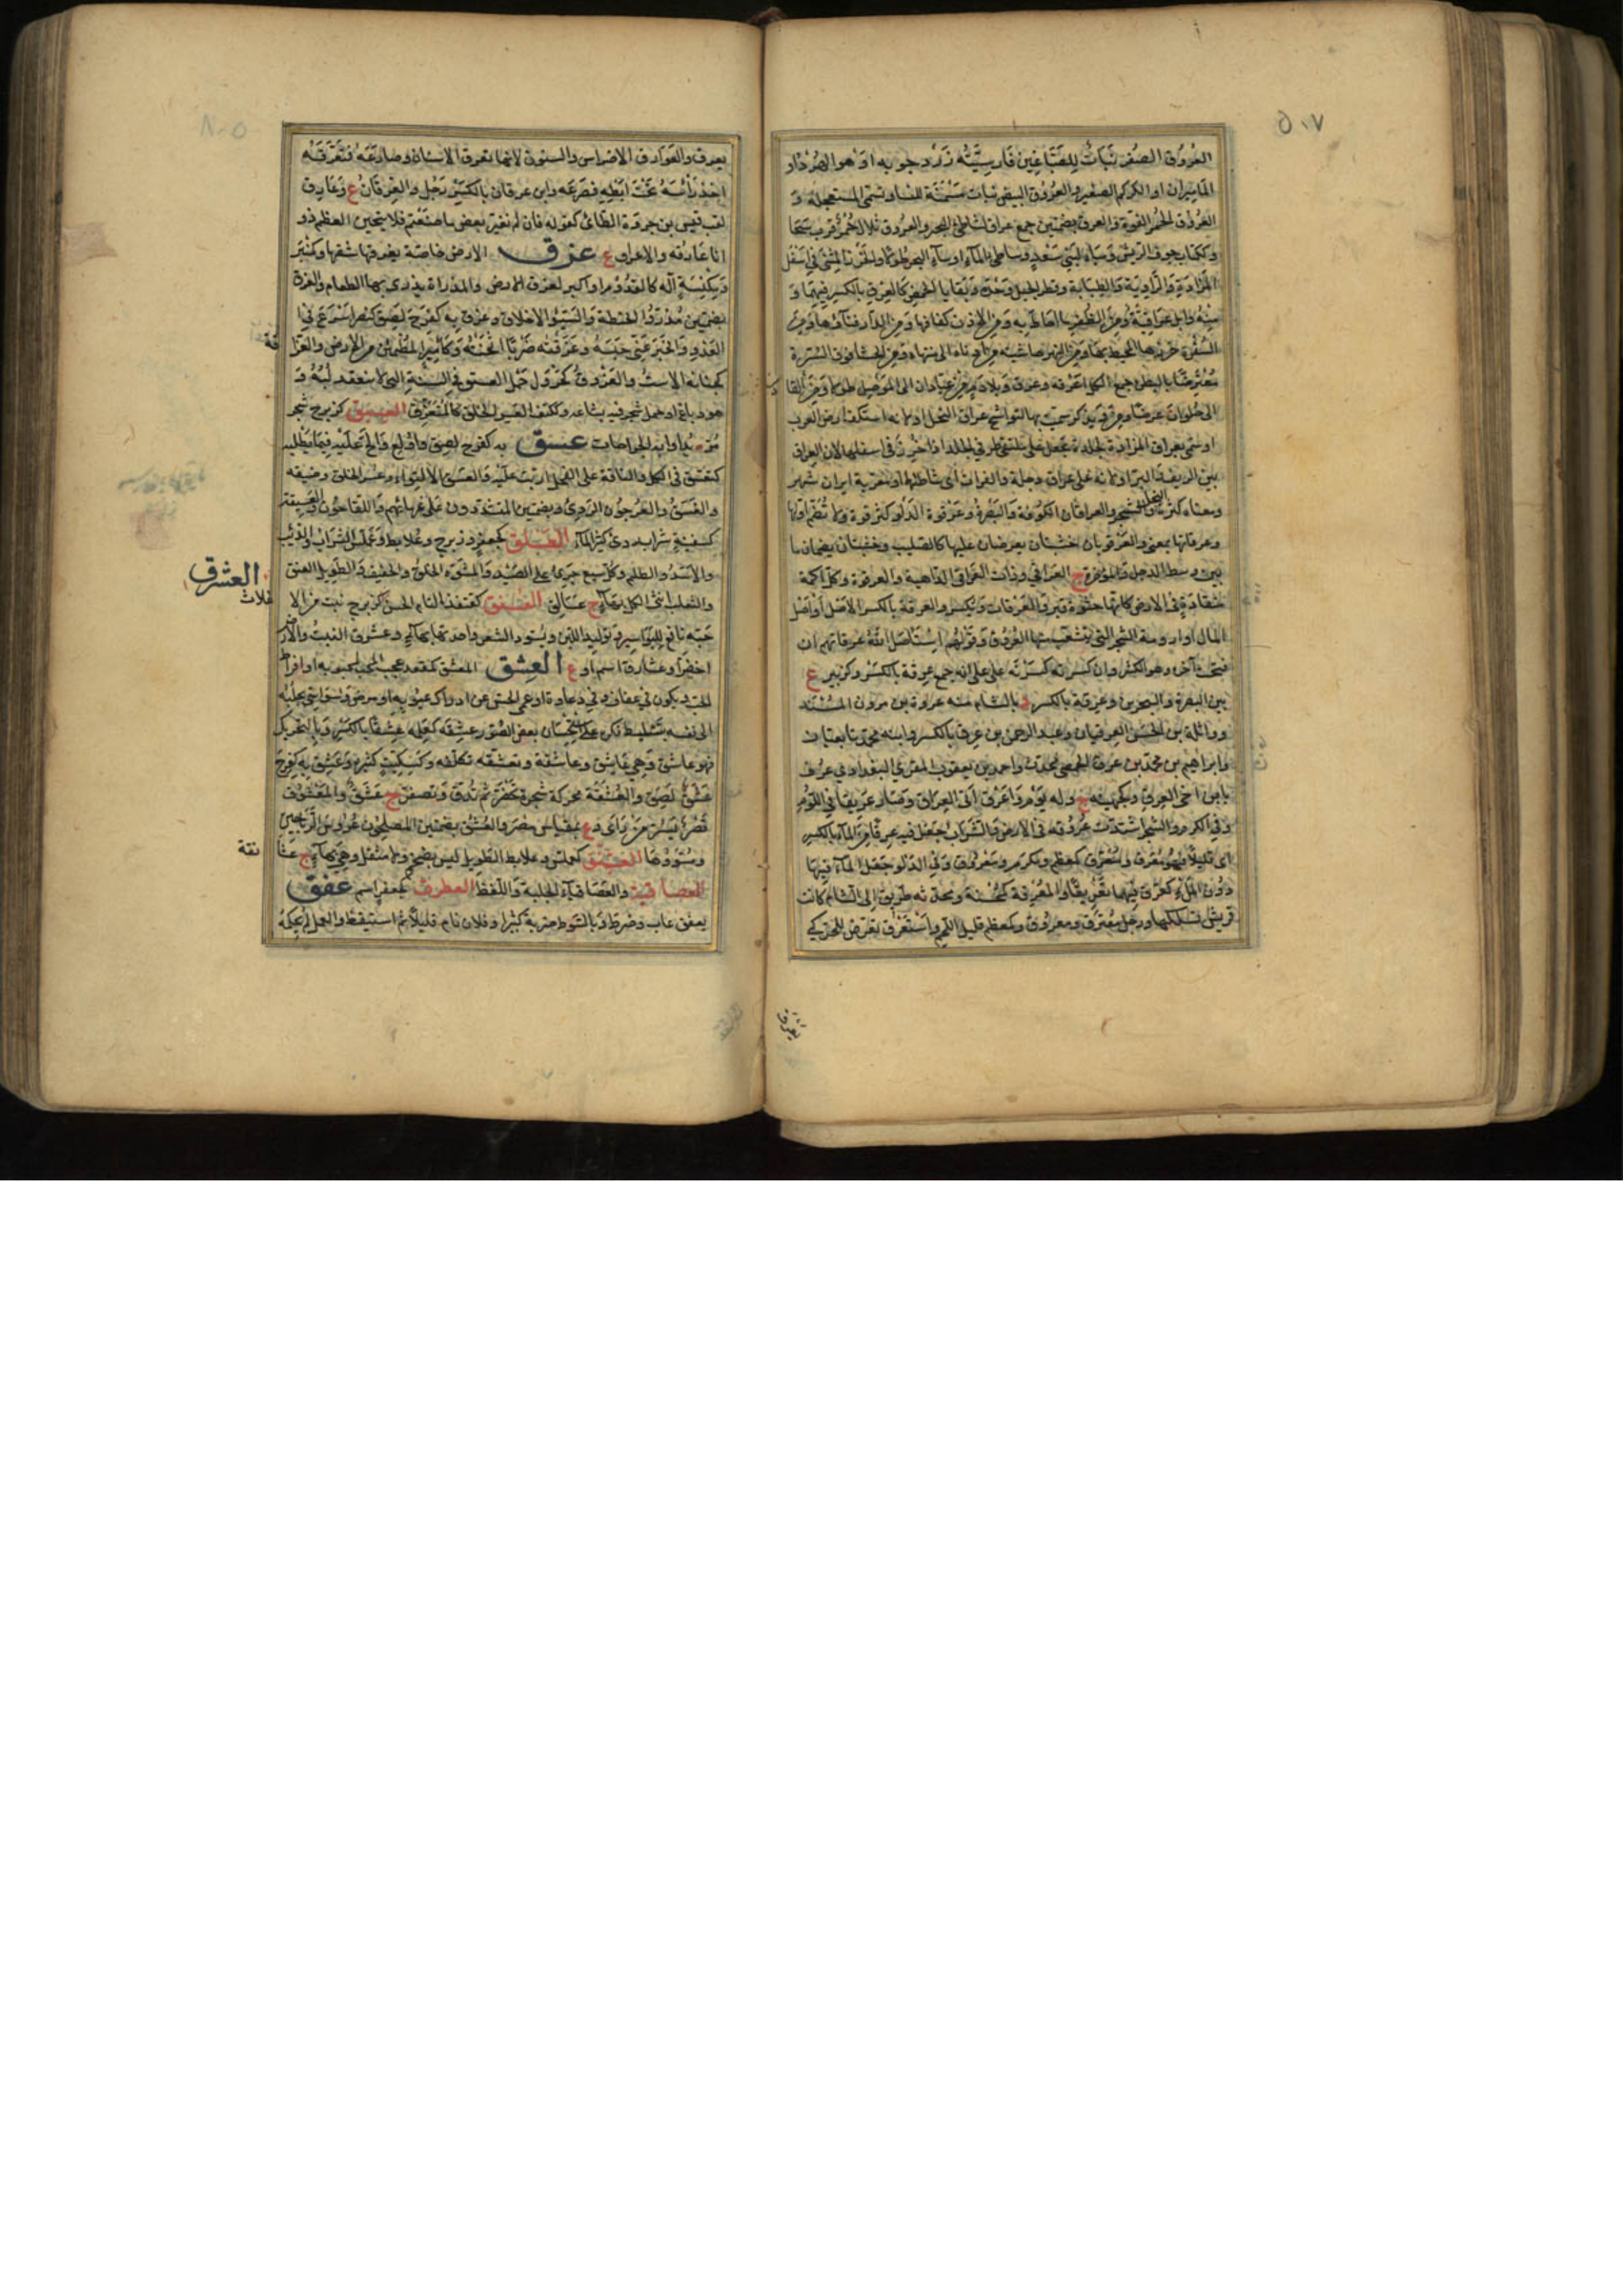 ٥٠٧
العُرُوق الصُفر نَبَاتٌ لِلصَبَّاغِين فَارِسِيَّتُه زَرْد جوبه اَوْ هو الهُرْد او
المَامِيران او الكركم الصغير والعُرُوق البيض نبات مُسَمِّنَة للنساء وتسمى المستعجلة وَ
العُرُوق الحُمُر الفُوّة والعرق بضمتين جمع عراق لشاطئ البحر والعُرُوق تلال حُمْرٌ قرب سَجَا
وككتاب جوف الريش وَمياه لبَني سَعْدٍ وشاطئ المآء او شاطئ البحر طولًا والخَرْز المثنى في اسفل
المَزَادَةِ وَالرَّاوِيَة
مِنْهُ وابل عِرَاقِيَّةٌ ومن الظُفر ما احَاطَ به وَمن الاذن كفافها وَمن الدار فناؤها ومن
السُفْرة خرزها المحيط بها ومن النهر حاشيته من ادناه الى منتهاه ومن الحشا فوق السُّرّة
مُعْتَرِضًا بالبطن جمع الكل اعْرِقَه وعُرق وبلاد م من عبّادان الى المَوْصِل طولا ومن القا
الى حُلوَانَ عرضًا ويذكر سميت بها لتواشج عراق النخل او لانه استكف ارض العرب
او سمى بعراق المزادة لجلدة تجعل على ملتقى طرفي الجلد اذا خُرِزَ في اسفلها لان العراق
بين الريف والبر او لانه على عراق دجلة والفرات اى شاطئهما او معربة ايران شهر
ومعناه كثيرة النخل والشجر والعراقان الكُوفة وَالبَصْرةُ وعَرْقوة الدَلو كترقوة ولا تُضَم اوّلها
وعرقاتها بمعنى والعَرْقوتان خشبتان يعرضان عليها كالصليب وخشبتان يضمان ما
بين وسط الرحل وَالمؤخرة ج العَراقي وذات العَرَاقي الداهية والعرقوة وكل اكمة
منقادة في الارض كانها جثوة قبر والعَرْقَات ويكسر والعرقة بالكسر الاصل اَوْ اصْل
المال او ارومة الشجر التى تتشعّب منها العُرُوق وَقَوْلهم اسْتاصَل اللهُ عرقاتهم ان
فتحت آخره وهو الاكثر وان كسرته كسَرْتَه على انه جمع عِرقة بالكسْر وكزبير ع
بين البصرة والبحرين وعِرْقة بالكسر د بالشام منه عروة بن مروان المُسْنِد
وواثلة بن الحسَن العِرقيان وعبد الرحمن بن عِرق بالكسر وابنه محمّد تابعيّان
وابراهيم بن محمّد بن عِرق الحمصي محدث واحمد بن يعقوب المقرئ البغدادي عرف
بابن اخى العِرق
وفي الكرم والشجر اشتدّت عُرُوقه في الارض وَالشَرَاب جَعَل فيه عِرقًا من المآء بالكسر
اى قليلًا فهُو مُعْرَق ومُعَرَّق كمعظم ومكرم ومَعْرُوق وَفي الدَلو جعَل المآء فيها
دُون المَلْءِ كعَرَّق فيهما تَعْرِيقًا والمُعْرِقة كمُحْسِنة ومحدّثه طريق الى الشام كانت
قريش تسلكها ورجل مُعْتَرَق ومعرُوق وكمعظم قليل اللحم واسْتَعْرَق تعَرّض للحر كى
٥٠٨
يعرق والعَوَارق الاضراس والسنون لانها تعرق الانسان وصارعَهُ فَتَعَرَّقَهُ
اخذ رَأسَهُ تَحْتَ ابْطِهِ فصَرَعَه وابن عرقان بالكسْر رَجُل والعِرقانُ ع وعَارِق
لقب قيس بن جروة الطائى كقوله فان لم نغير بعض ما صنَعْتم فلانتحين العظم ذو
انا عارقه والاعراق ع عزق الارض خاصّة يعزقها شقها وكمِنْبَر
وَمِكْنِسَةٍ آلة كالقَدُوم او اكبر لعزق الارض والمذراة يذرى بها الطعام والعُزق
بضمتين مُذرّوُا الحنطة وَالسَيّئُوا الاخلاق وعزق به كفرح لصق كنصر اسْرَع في
العَدْو وَالخبَرَ عَنّي حبَسَهُ وعَزقتُه ضَرْبًا اثخنتُهُ وكاميرٍ المُطمَئن من الارض والعَزَا
قة
كجبَانة الاستُ والعَزْوق كجَرْوَل حَمْل الفستق في السنة التى لا ينعقد لُبّهُ وَ
هو دباغ او حمل شجر فيه بشاعه وككتف العَسِر الخلق كالمُتعَزّق العسبق كزبرج شجر
مُرّ يداوى به الجراحات عسق به كفرح لصق واُولع وَالَحّ عَلَيْهِ فِيمَا يَطْلبه
كتعَسّق فى الكل والناقة على الفحل اربّت عليْه وَالعَسَق الالتواء وعُسْر الخلق وضيقه
والعَسَقُ والعُرجُون الرَديُ وبضمتين المتشدّدون على غرمائهم وَاللقّاحُون والعَسِيقة
كسفينة شراب ردى كثير المآء العسلق كجعفر وزبرج وعُلابط وعَمَلّس السّرَاب والذئب
والاسَدُ والظليم وكل سبع جرئ على الصَّيْد والمشوّه الخلق والخفيف والطويل العنق
والثعلب انثى الكل بهآء ج عسَالق العسنق كقنفذ التام الحسن كزبرج نبت من الا
العشرق
غلاث
حبّه نافع للبَوَاسير وتوليد اللبن ويُسوّد الشعر واحدتها بهآءٍ وعشرق النبتُ والارض
اخضَرّا وعشارق اسم او ع العِشق المعشق كمقعد عجب المحب بمحبوبه او افراط
الحب ويكون في عفاف وفي دعارة او عمى الحس عن ادراك عيُوبه او مرض وسوَاسي يجلبه
الى نفسه بتسْليط فكره على استحسان بعض الصُوَر عشقه كعلمه عِشقًا بالكسْر وبالتحريك
فهو عاشق وهي عَاشق وعاشقة وتعشّقه تكلفه وكسِكّيتٍ كثيره وَعَشِق به كفرح
لَصِق والعَشَقَة محركة شجرة تَخضَرُّ ثم تُدق وَتصْفرّ ج عَشَقٌ وَالمَعشوق
قصْرٌ بسُرّ مَنْ رَاَى وع بمقياس مصر والعُشُق بضمتين المصلحُون غرُوس الرّيَاحين
ومُسَوُّوهَا العشنّق كعملّس وعلابط الطويل ليس بضخم ولا مثقل وهي بهآءٍ ج عشا
نقة
العصاقية والعصَاقيآء الجلبة وَاللّغط العطرق كجعفر اسم عفق
يعفق غاب وضَرط وبالسَوط ضربه كثيرا وفلان نام قليلًا ثم استيقظ والعمل لم يُحكِمْهُ